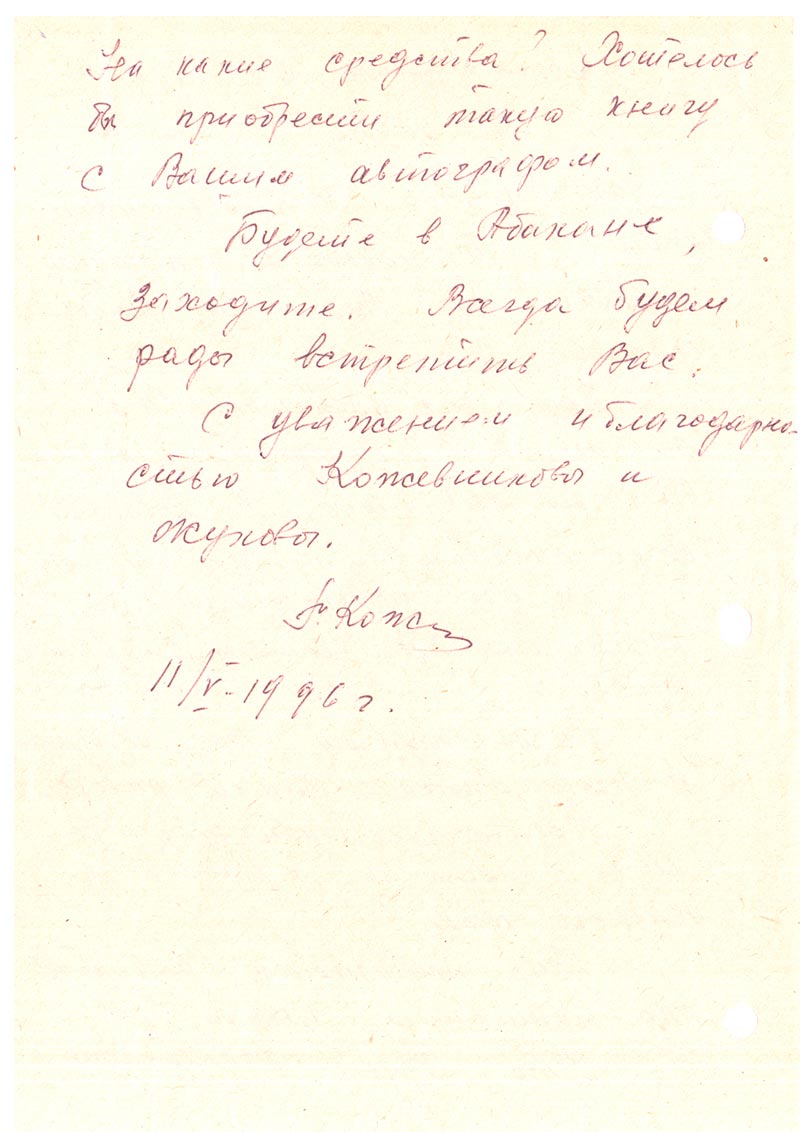 На какие средства? Хотелось
бы приобрести такую книгу
с Вашим автографом.
Будете в Абакане,
заходите. Всегда будем
рады встретить Вас.
С уважением и благодарно-
стью Кожевниковы и
Жуковы.
Г. Кож
11/V-1996 г.